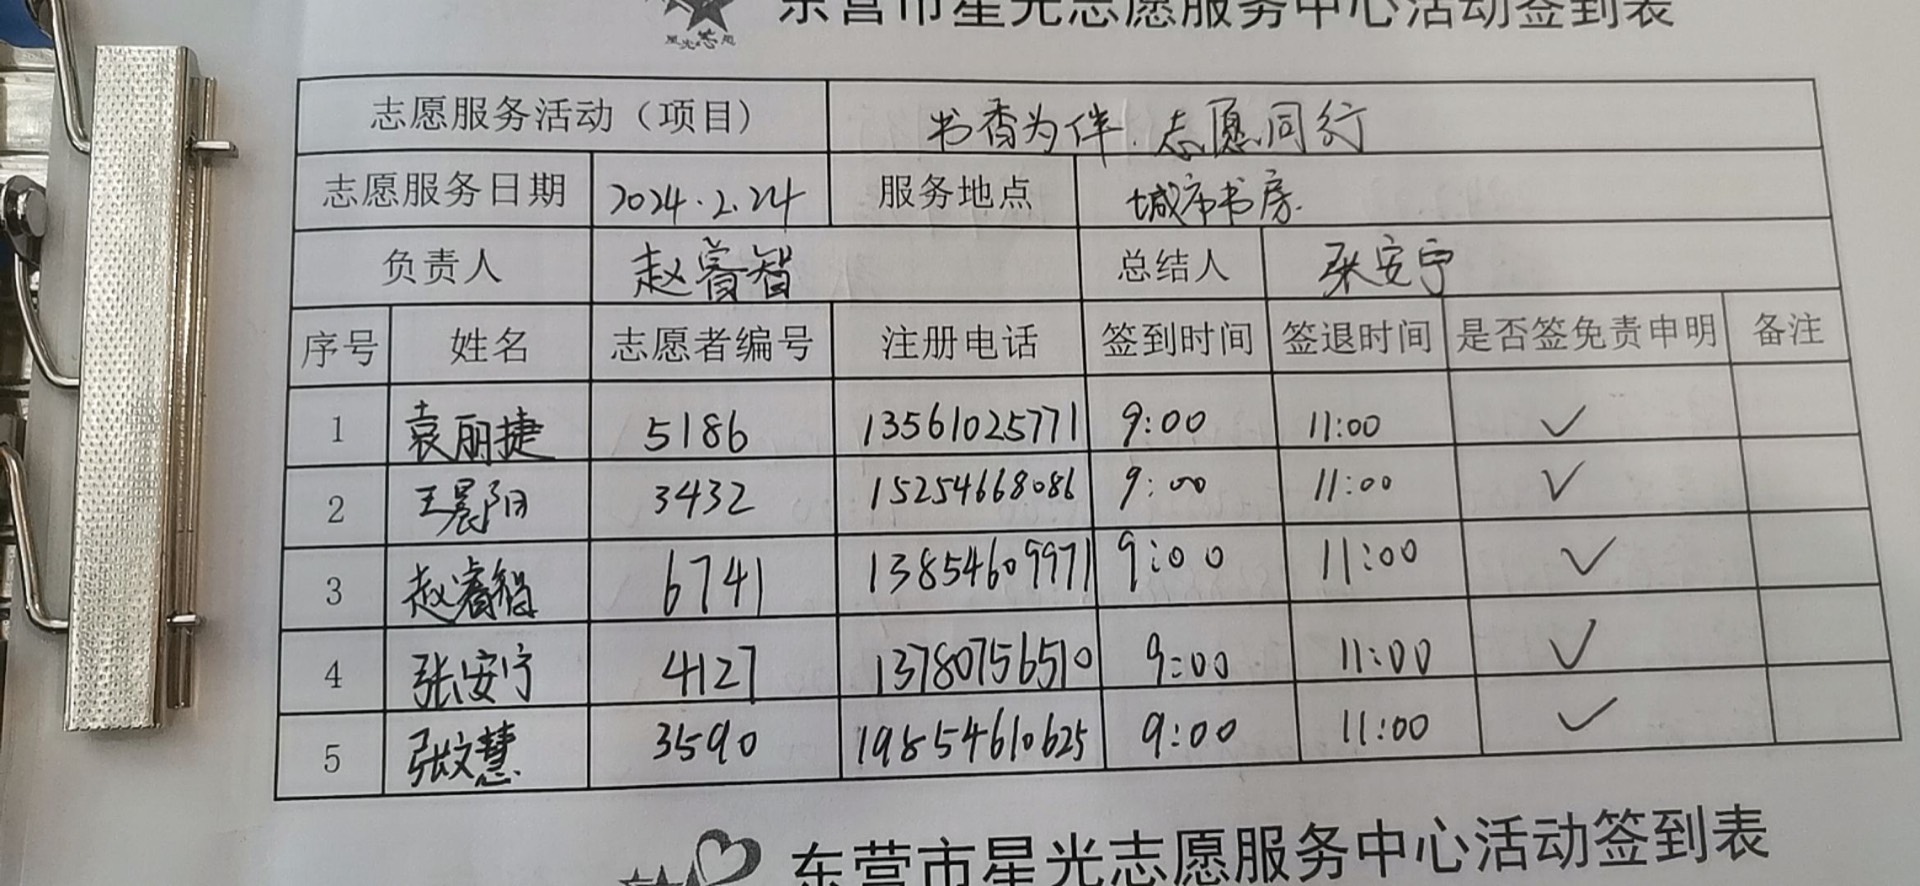 东营市星光志愿服务中心活动签到表
星光志愿
志愿服务活动（项目） 书香为伴.志愿同行
志愿服务日期 2024.2.24 服务地点 城市书房.
负责人 赵睿智 总结人 张安宁
序号 姓名 志愿者编号 注册电话 签到时间 签退时间 是否签免责申明 备注
1 袁丽捷 5186 13561025771 9:00 11:00 ✓
2 王晨阳 3432 15254668086 9:00 11:00 ✓
3 赵睿智 6741 13854609971 9:00 11:00 ✓
4 张安宁 4127 13780756510 9:00 11:00 ✓
5 张文慧 3590 19854610625 9:00 11:00 ✓
东营市星光志愿服务中心活动签到表